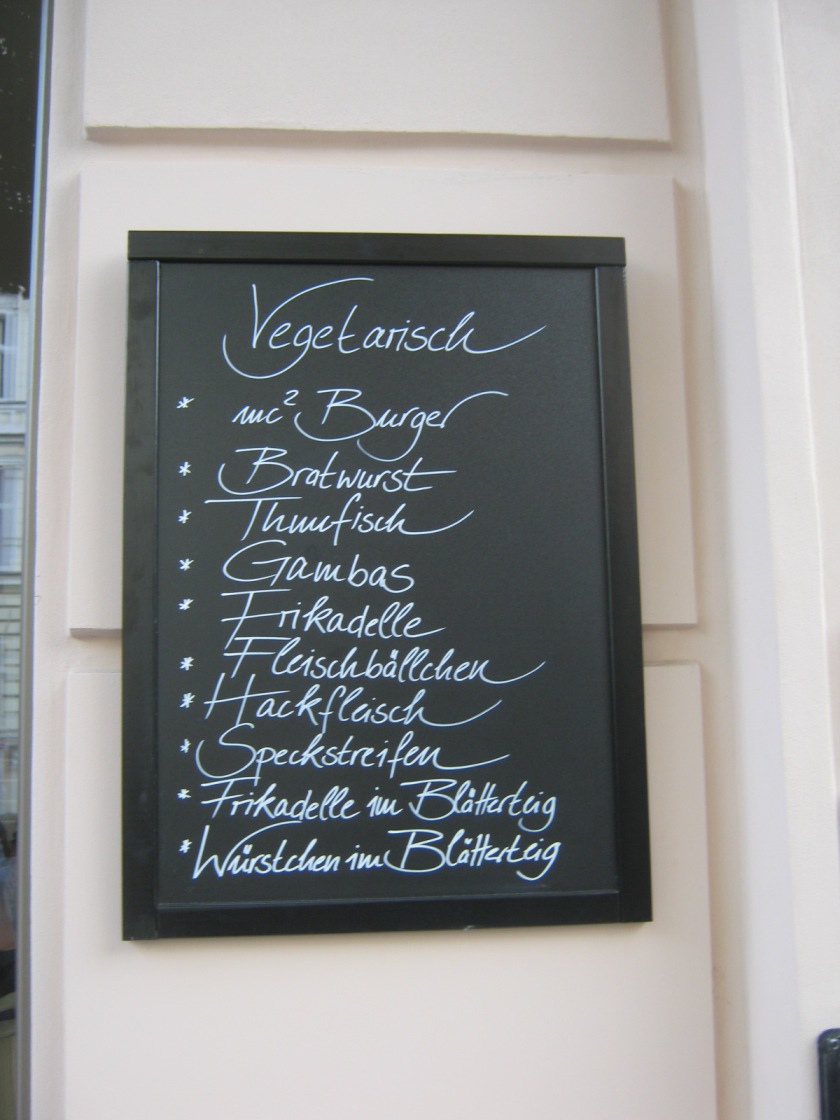 Vegetarisch
* mc² Burger
* Bratwurst
* Thunfisch
* Gambas
* Frikadelle
* Fleischbällchen
* Hackfleisch
* Speckstreifen
* Frikadelle im Blätterteig
* Würstchen im Blätterteig